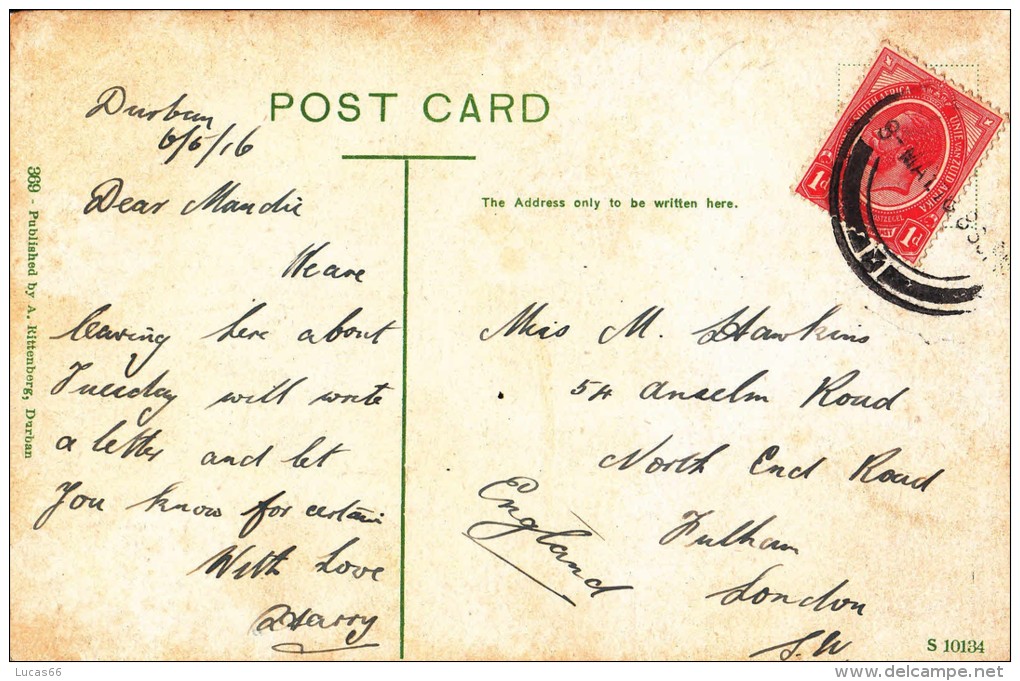 POST CARD
Durban
6/5/16
Dear Maudie
We are
leaving here about
Tuesday will write
a letter and let
You know for certain
With Love
Harry
369 - Published by A. Rittenberg, Durban
The Address only to be written here.
SOUTH AFRICA
UNIE VAN ZUID AFRIKA
POSTZEGEL
1d
1d
Miss M. Hawkins
54 Anselm Road
North End Road
Fulham
London
S.W.
England
S 10134
Lucas66
delcampe.net